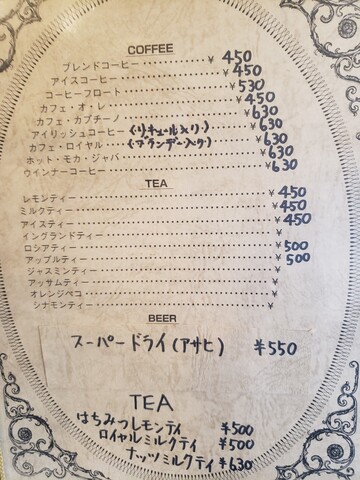 COFFEE
ブレンドコーヒー ¥450
アイスコーヒー ¥450
コーヒーフロート ¥530
カフェ・オ・レ ¥450
カフェ・カプチーノ ¥630
アイリッシュコーヒー(リキュール入り) ¥630
カフェ・ロイヤル(ブランデー入り) ¥630
ホット・モカ・ジャバ ¥630
ウインナーコーヒー ¥630
TEA
レモンティー ¥450
ミルクティー ¥450
アイスティー ¥450
イングランドティー ¥
ロシアティー ¥500
アップルティー ¥500
ジャスミンティー ¥
アッサムティー ¥
オレンジペコ ¥
シナモンティー ¥
BEER
スーパードライ(アサヒ) ¥550
TEA
はちみつレモンティ ¥500
ロイヤルミルクティ ¥500
ナッツミルクティ ¥630